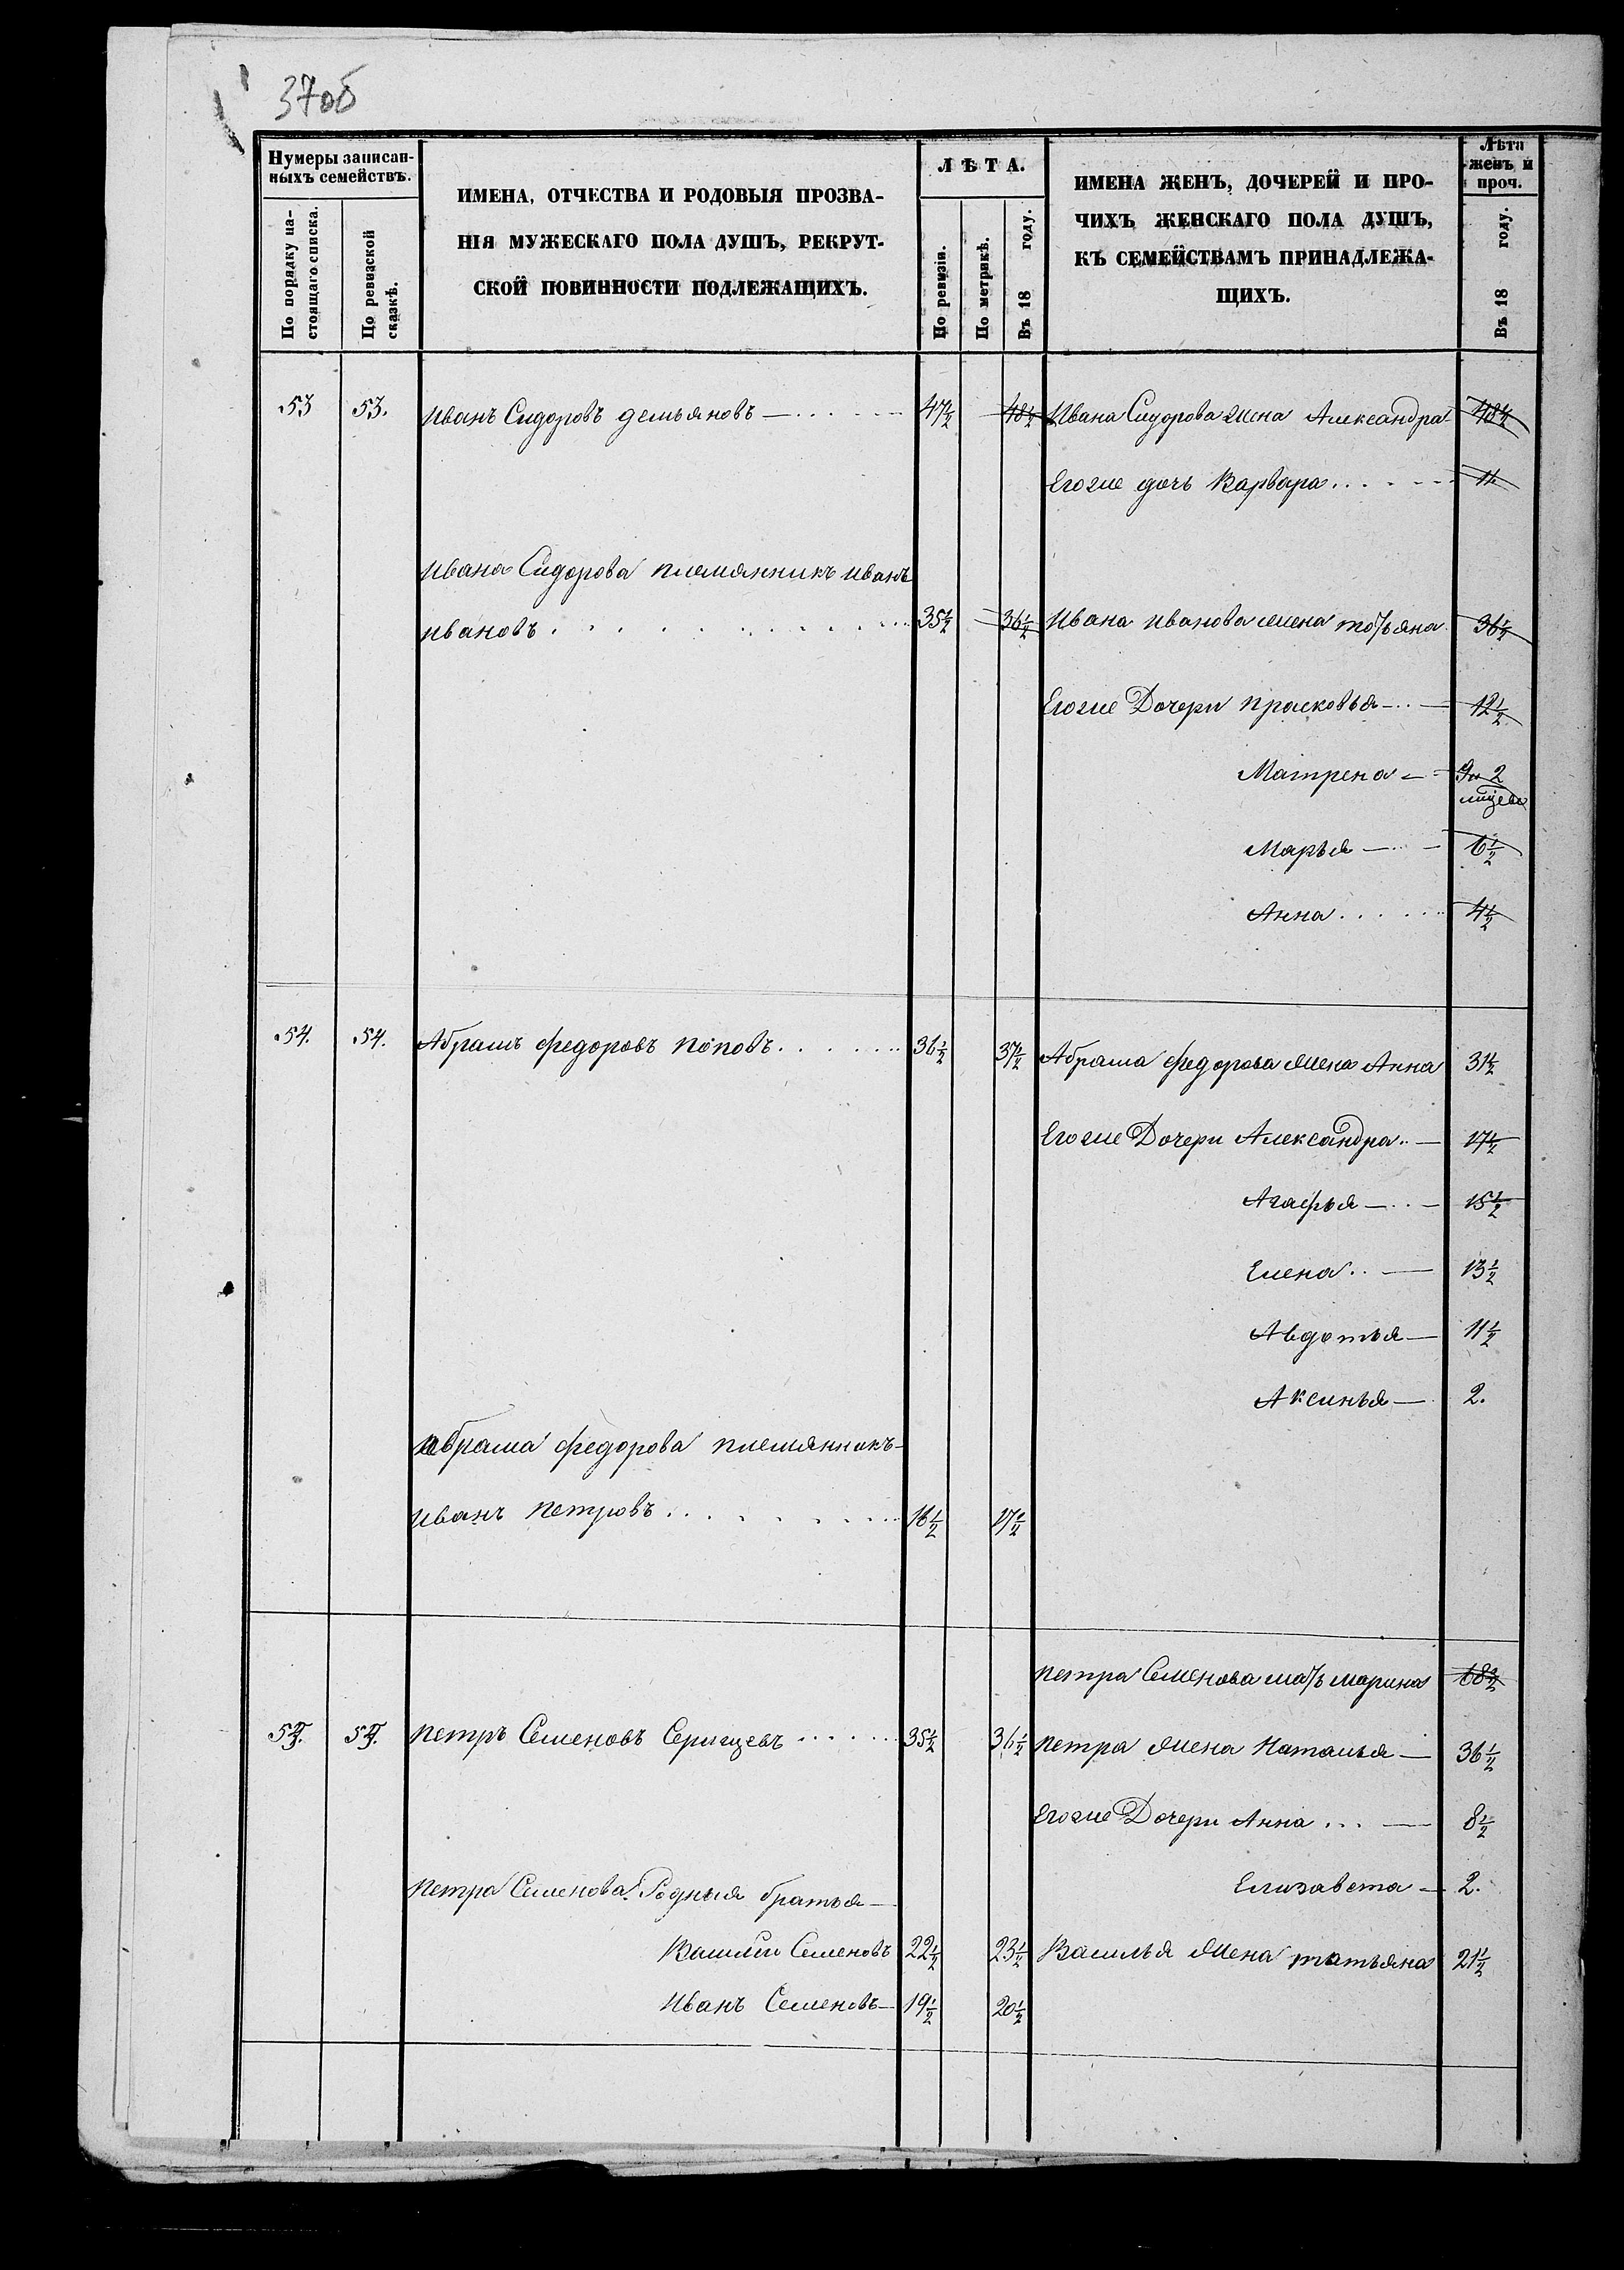 37об
Нумеры записан-
ныхъ семействъ.
По порядку на-
стоящаго списка.
По ревизской
сказкѣ.
ИМЕНА, ОТЧЕСТВА И РОДОВЫЯ ПРОЗВА-
НІЯ МУЖЕСКАГО ПОЛА ДУШЪ, РЕКРУТ-
СКОЙ ПОВИННОСТИ ПОДЛЕЖАЩИХЪ.
ЛѢТА.
По ревизіи.
По метрикѣ.
Въ 18 году.
ИМЕНА ЖЕНЪ, ДОЧЕРЕЙ И ПРО-
ЧИХЪ ЖЕНСКАГО ПОЛА ДУШЪ,
КЪ СЕМЕЙСТВАМЪ ПРИНАДЛЕЖА-
ЩИХЪ.
Лѣта
женъ и
проч.
Въ 18 году.
53 53. Иванъ Сидоровъ демьяновъ 47½ 48½ Ивана Сидорова жена Александра 48½
Егоже дочь Варвара 11
Ивана Сидорова племянникъ иванъ
ивановъ 35½ 36½ Ивана иванова жена татьяна 36½
Егоже Дочери прасковья 12½
Матрена 9 и 2
Марья 6½
Анна 4½
54. 54. Абрамъ федоровъ поповъ 36½ 37½ Абрама федорова жена Анна 31½
Егоже Дочери Александра 17½
Агафья 15½
Елена 13½
Авдотья 11½
Аксинья 2.
абрама федорова племянникъ
иванъ петровъ 16½ 17½
петра Семенова мать марина 68½
55. 55. петръ Семеновъ 35½ 36½ петра жена Наталья 36½
Егоже Дочери Анна 8½
петра Семенова Родныя братья Елизавета 2.
Василий Семеновъ 22½ 23½ Василья жена татьяна 21½
Иванъ Семеновъ 19½ 20½